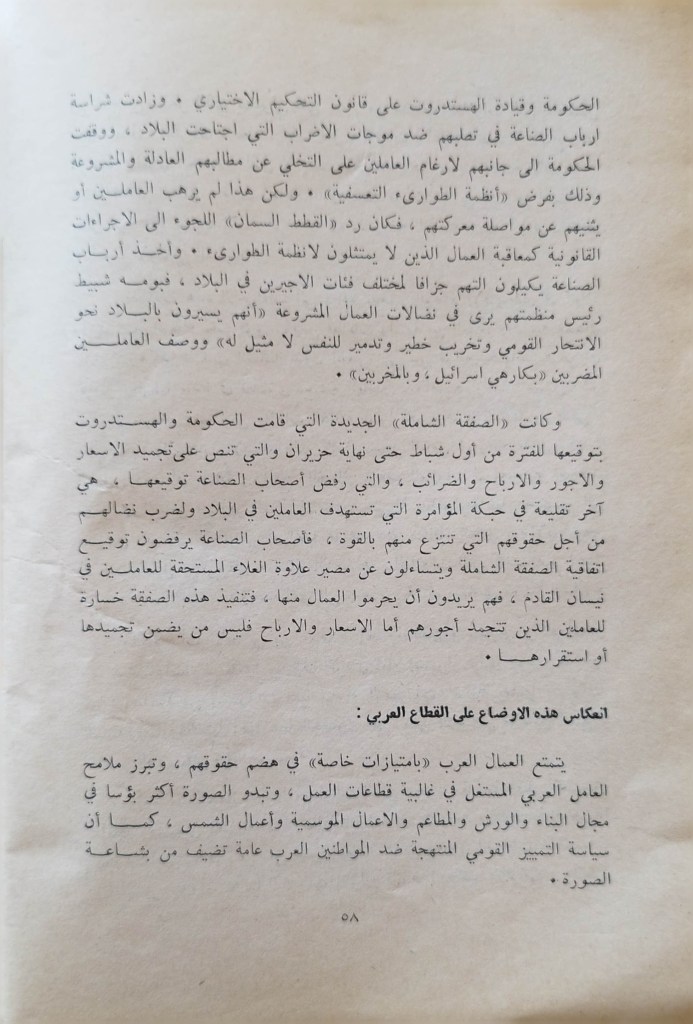 الحكومة وقيادة الهستدروت على قانون التحكيم الاختياري • وزادت شراسة
ارباب الصناعة في تصلبهم ضد موجات الاضراب التي اجتاحت البلاد ، ووقفت
الحكومة الى جانبهم لارغام العاملين على التخلي عن مطالبهم العادلة والمشروعة
وذلك بفرض «أنظمة الطوارىء التعسفية» • ولكن هذا لم يرهب العاملين أو
يثنيهم عن مواصلة معركتهم ، فكان رد «القطط السمان» اللجوء الى الاجراءات
القانونية كمعاقبة العمال الذين لا يمتثلون لانظمة الطوارىء • وأخذ أرباب
الصناعة يكيلون التهم جزافا لمختلف فئات الاجيرين في البلاد ، فبومه شبيط
رئيس منظمتهم يرى في نضالات العمال المشروعة «أنهم يسيرون بالبلاد نحو
الانتحار القومي وتخريب خطير وتدمير للنفس لا مثيل له» ووصف العاملين
المضربين «بكارهي اسرائيل ، وبالمخربين» •
وكانت «الصفقة الشاملة» الجديدة التي قامت الحكومة والهستدروت
بتوقيعها للفترة من أول شباط حتى نهاية حزيران والتي تنص على تجميد الاسعار
والاجور والارباح والضرائب ، والتي رفض أصحاب الصناعة توقيعها ، هي
آخر تقليعة في حبكة المؤامرة التي تستهدف العاملين في البلاد ولضرب نضالهم
من أجل حقوقهم التي تنتزع منهم بالقوة ، فأصحاب الصناعة يرفضون توقيع
اتفاقية الصفقة الشاملة ويتساءلون عن مصير علاوة الغلاء المستحقة للعاملين في
نيسان القادم ، فهم يريدون أن يحرموا العمال منها ، فتنفيذ هذه الصفقة خسارة
للعاملين الذين تتجمد أجورهم أما الاسعار والارباح فليس من يضمن تجميدها
أو استقرارها •
انعكاس هذه الاوضاع على القطاع العربي :
يتمتع العمال العرب «بامتيازات خاصة» في هضم حقوقهم ، وتبرز ملامح
العامل العربي المستغل في غالبية قطاعات العمل ، وتبدو الصورة أكثر بؤسا في
مجال البناء والورش والمطاعم والاعمال الموسمية وأعمال الشمس ، كما أن
سياسة التمييز القومي المنتهجة ضد المواطنين العرب عامة تضيف من بشاعة
الصورة •
٥٨